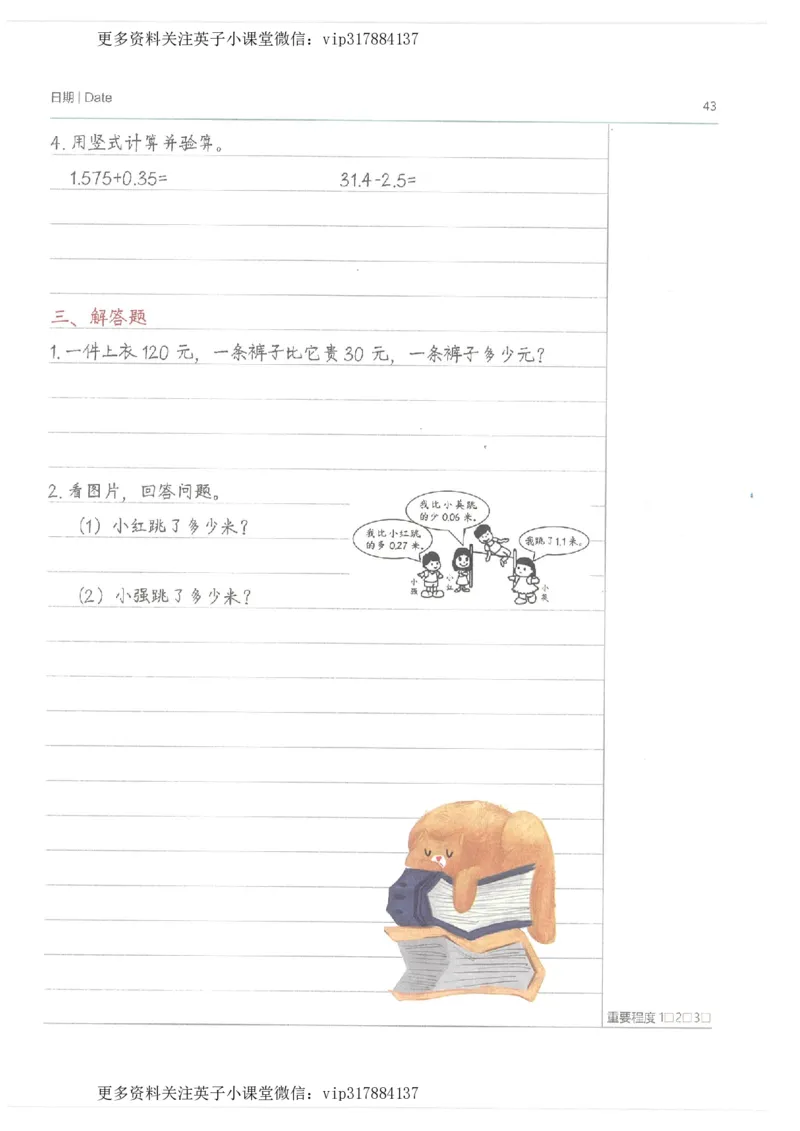 更多资料关注英子小课堂微信：vip317884137
日期 | Date
43
4.用竖式计算并验算。
1.575+0.35=
31.4-2.5=
三、解答题
1.一件上衣120元，一条裤子比它贵30元，一条裤子多少元？
2.看图片，回答问题。
（1）小红跳了多少米？
我比小英跳
的少0.05米。
我比小红跳
的多0.27米。
我跳了1.1米。
小强
小红
小英
（2）小强跳了多少米？
重要程度 1□2□3□
更多资料关注英子小课堂微信：vip317884137